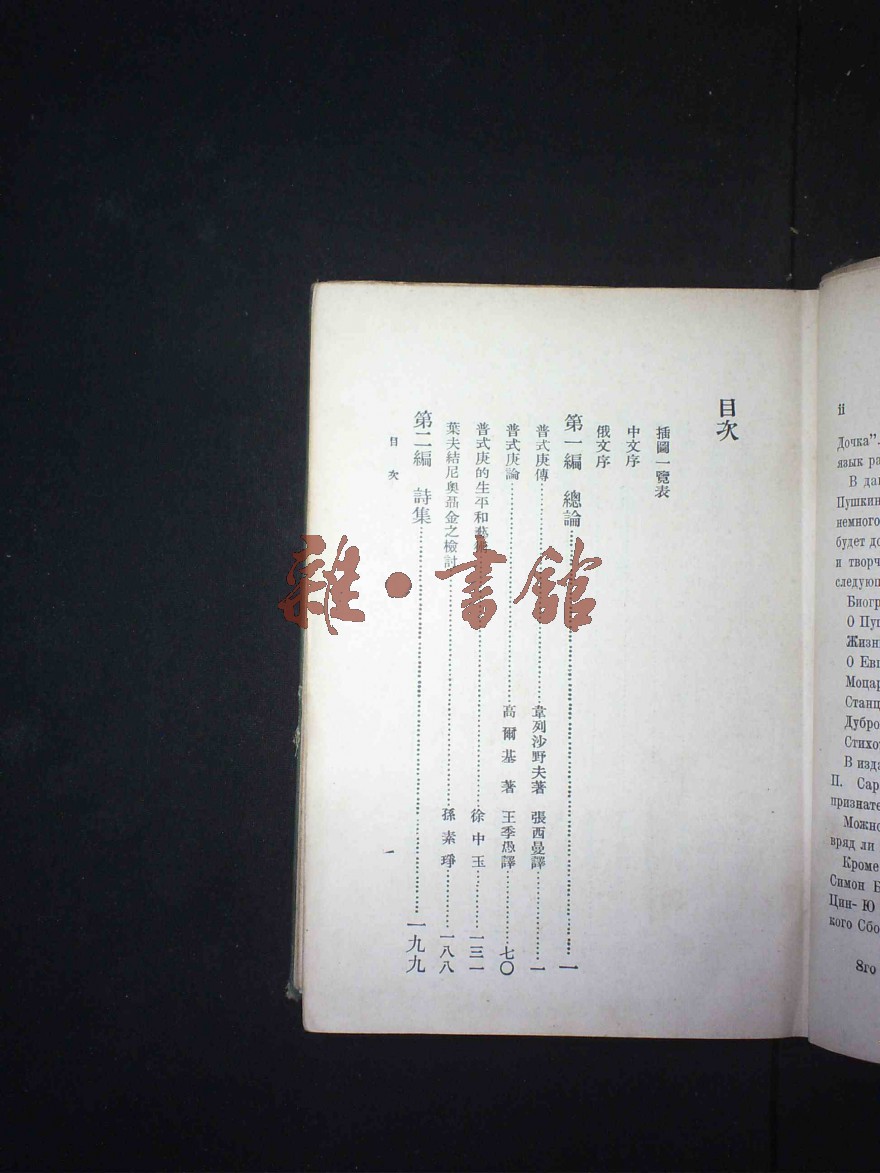 目次
插圖一覽表
中文序
俄文序
第一編 總論……一
普式庚傳……韋列沙野夫著 張西曼譯……一
普式庚論……高爾基著 王季愚譯……七〇
普式庚的生平和藝……徐中玉……一三一
葉夫結尼奧尼金之檢討……孫素琤……一八八
第二編 詩集……一九九
目次
一
雜·書館
ii
Дочка".
язык ра
В дан
Пушкин
немного
будет до
и творч
следующ
Биогр
О Пуш
Жизн
О Евг
Моцар
Станц
Дубро
Стихот
В изда
П. Сар
признате
Можно
вряд ли
Кроме
Симон Б
Цин-Ю
кого Сбо
8го